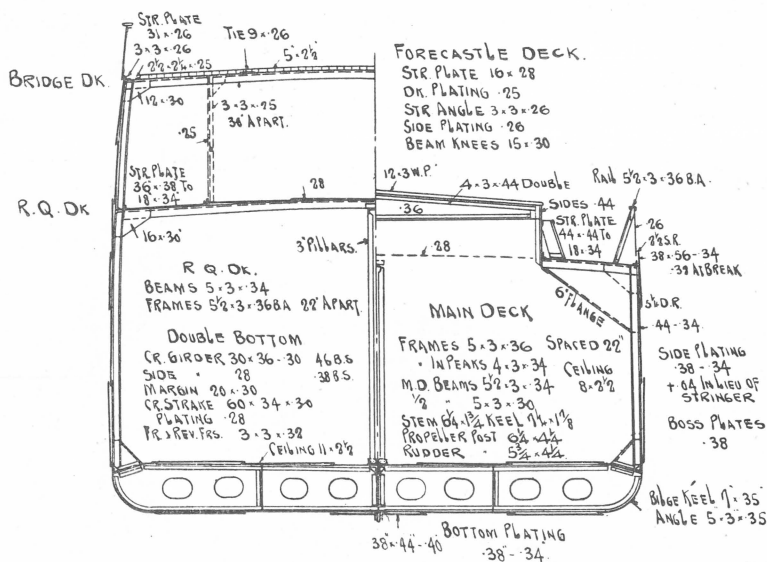 STR. PLATE
31 × .26
3 × 3 × .26
2½ × 2½ × .25
TIE 9 × .26
5" × 2½"
BRIDGE DK.
12 × .30
3 × 3 × .25
36" APART.
.25
STR. PLATE
36" × .38 TO
18" × .34"
28
R.Q. DK
16 × 30"
3" PILLARS.
R Q. DK.
BEAMS 5 × 3 × .34
FRAMES 5½ × 3 × .36 BA 22" APART.
DOUBLE BOTTOM
CR. GIRDER 30 × 36 - 30 46 B.S
SIDE " 28 38 B.S.
MARGIN 20 × .30
CR. STRAKE 60 × 34 × 30
PLATING .28
FR. & REV. FRS. 3 × 3 × .32
CEILING 11 × 2½
FORECASTLE DECK.
STR. PLATE 16 × 28
DK. PLATING .25
STR ANGLE 3 × 3 × .26
SIDE PLATING .26
BEAM KNEES 15 × .30
12 × 3 W.P.
4 × 3 × .44 DOUBLE
RAIL 5½ × 3 × 36 B.A.
.36
SIDES .44
STR. PLATE
44 × .44 TO
18 × 34
.28
26
2½ S.R.
38 × .56 - .34
.39 AT BREAK
6" FLANGE
D.R.
.44 - 34.
MAIN DECK
FRAMES 5 × 3 × 36 SPACED 22"
" IN PEAKS 4 × 3 × 34
CEILING
8 × 2½
M.D. BEAMS 5½ × 3 × .34
½ " 5 × 3 × .30
STEM 6¼ × 1¾ KEEL 7½ × 1⅞
PROPELLER POST 6¼ × 4¼
RUDDER " 5¾ × 4¼
SIDE PLATING
.38 - .34
+ .04 IN LIEU OF
STRINGER
BOSS PLATES
.38
BILGE KEEL 7" × 35"
ANGLE 5 × 3" × 35
BOTTOM PLATING
.38" - .34
38" × .44" - .40